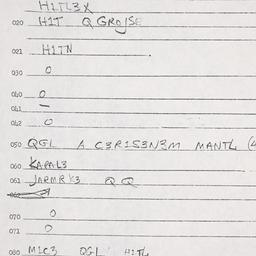 H1TL3X
020 H1T Q GROJSE
021 H1TN
030 O
040 O
041 —
042 O
050 QGL A C3R1S3N3M MANTL (4
060 KAPAL3
061 JARMR K3 Q Q
070 O
071 O
080 M1C3 QGL H1TL